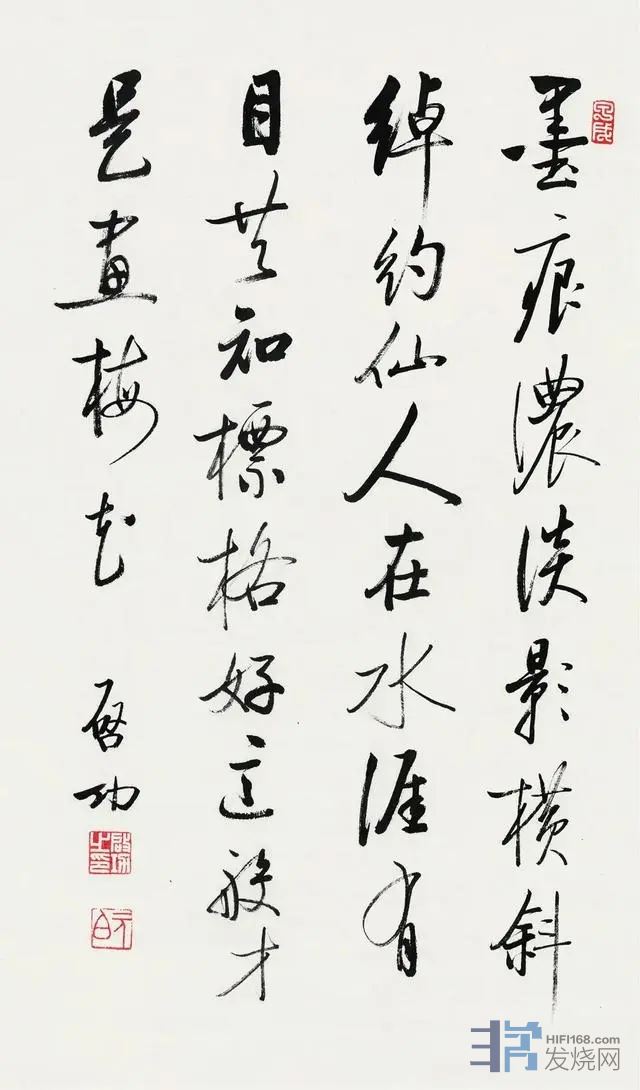 墨痕濃淡影橫斜
綽約仙人在水涯有
目共知標格好這般才
是畫梅花
啓功
啟功之印
元白
HIFI168.com
发烧网